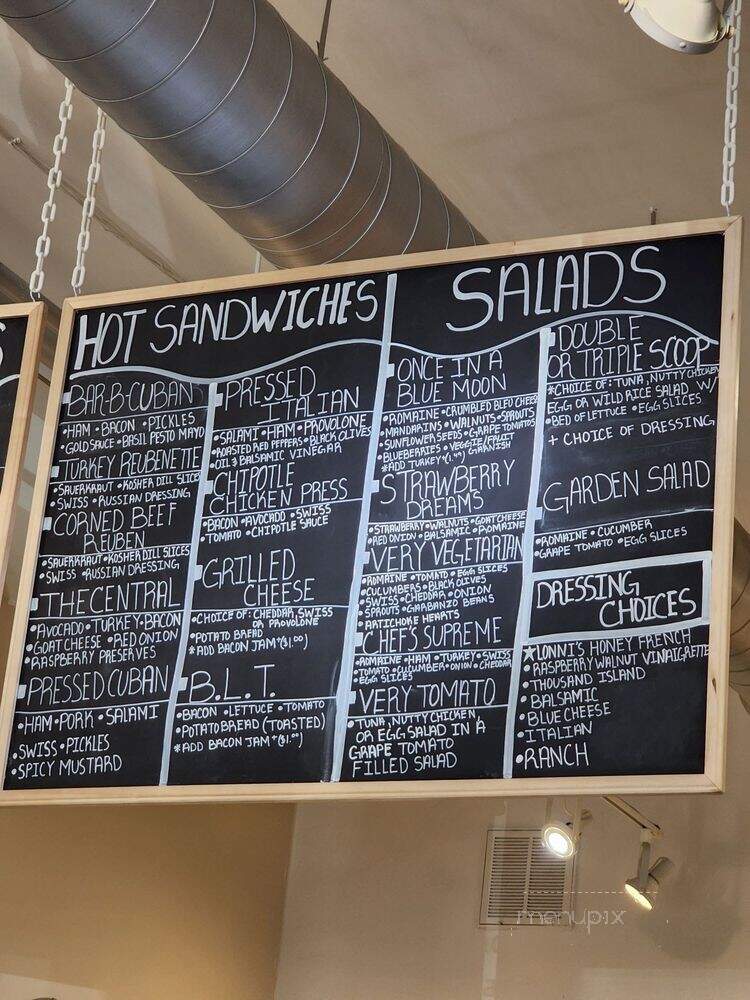 HOT SANDWICHES
BAR-B-CUBAN
•HAM •BACON •PICKLES
•GOLD SAUCE •BASIL PESTO MAYO
TURKEY REUBENETTE
•SAUERKRAUT •KOSHER DILL SLICES
•SWISS •RUSSIAN DRESSING
CORNED BEEF
REUBEN
•SAUERKRAUT •KOSHER DILL SLICES
•SWISS •RUSSIAN DRESSING
THE CENTRAL
•AVOCADO •TURKEY •BACON
•GOAT CHEESE •RED ONION
•RASPBERRY PRESERVES
PRESSED CUBAN
•HAM •PORK •SALAMI
•SWISS •PICKLES
•SPICY MUSTARD
PRESSED
ITALIAN
•SALAMI •HAM •PROVOLONE
•ROASTED RED PEPPERS •BLACK OLIVES
•OIL & BALSAMIC VINEGAR
CHIPOTLE
CHICKEN PRESS
•BACON •AVOCADO •SWISS
•TOMATO •CHIPOTLE SAUCE
GRILLED
CHEESE
•CHOICE OF: CHEDDAR, SWISS
OR PROVOLONE
•POTATO BREAD
*ADD BACON JAM +($1.00)
B.L.T.
•BACON •LETTUCE •TOMATO
•POTATO BREAD (TOASTED)
*ADD BACON JAM +($1.00)
SALADS
ONCE IN A
BLUE MOON
•ROMAINE •CRUMBLED BLEU CHEESE
•MANDARINS •WALNUTS •SPROUTS
•SUNFLOWER SEEDS •GRAPE TOMATOS
•BLUEBERRIES •VEGGIE/FRUIT
*ADD TURKEY+(1.99) GARNISH
STRAWBERRY
DREAMS
•STRAWBERRY •WALNUTS •GOAT CHEESE
•RED ONION •BALSAMIC •ROMAINE
VERY VEGETARIAN
•ROMAINE •TOMATO •EGG SLICES
•CUCUMBERS •BLACK OLIVES
•SWISS •CHEDDAR •ONION
•SPROUTS •GARBANZO BEANS
•ARTICHOKE HEARTS
CHEF'S SUPREME
•ROMAINE •HAM •TURKEY •SWISS
•TOMATO •CUCUMBER •ONION •CHEDDAR
•EGG SLICES
VERY TOMATO
•TUNA, NUTTY CHICKEN,
OR EGG SALAD IN A
GRAPE TOMATO
FILLED SALAD
DOUBLE
OR TRIPLE SCOOP
*CHOICE OF: TUNA, NUTTY CHICKEN
EGG OR WILD RICE SALAD W/
•BED OF LETTUCE •EGG SLICES
+ CHOICE OF DRESSING
GARDEN SALAD
•ROMAINE •CUCUMBER
•GRAPE TOMATO •EGG SLICES
DRESSING
CHOICES
★LONNI'S HONEY FRENCH
•RASPBERRY WALNUT VINAIGRETTE
•THOUSAND ISLAND
•BALSAMIC
•BLUE CHEESE
•ITALIAN
•RANCH
menupix